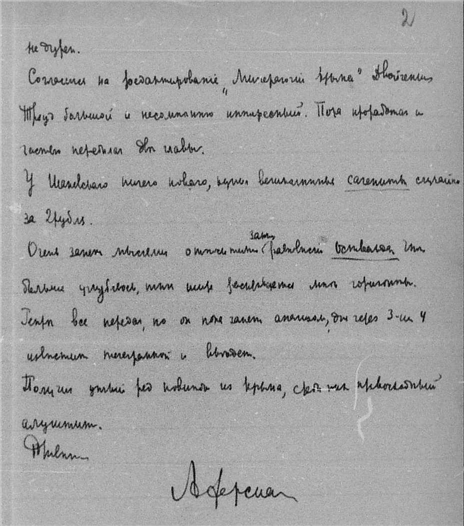 2
не дурен.
Согласился на редактирование „Минералогии Крыма" Двойченки
Труд большой и несомненно интересный. Пока проработал и
частью переделал две главы.
У Шкловского ничего нового, купил великолепный сагенит случайно
за 2 рубля.
Очень занят мыслями относительно
больше углубляюсь, тем шире расширяются мои горизонты.
все передал, но он пока занят анализом, дня через 3-и 4
известит телеграммой и выедет.
Получил целый ряд новинок из Крыма, превосходный
алуштит.
Привет
АФерсман